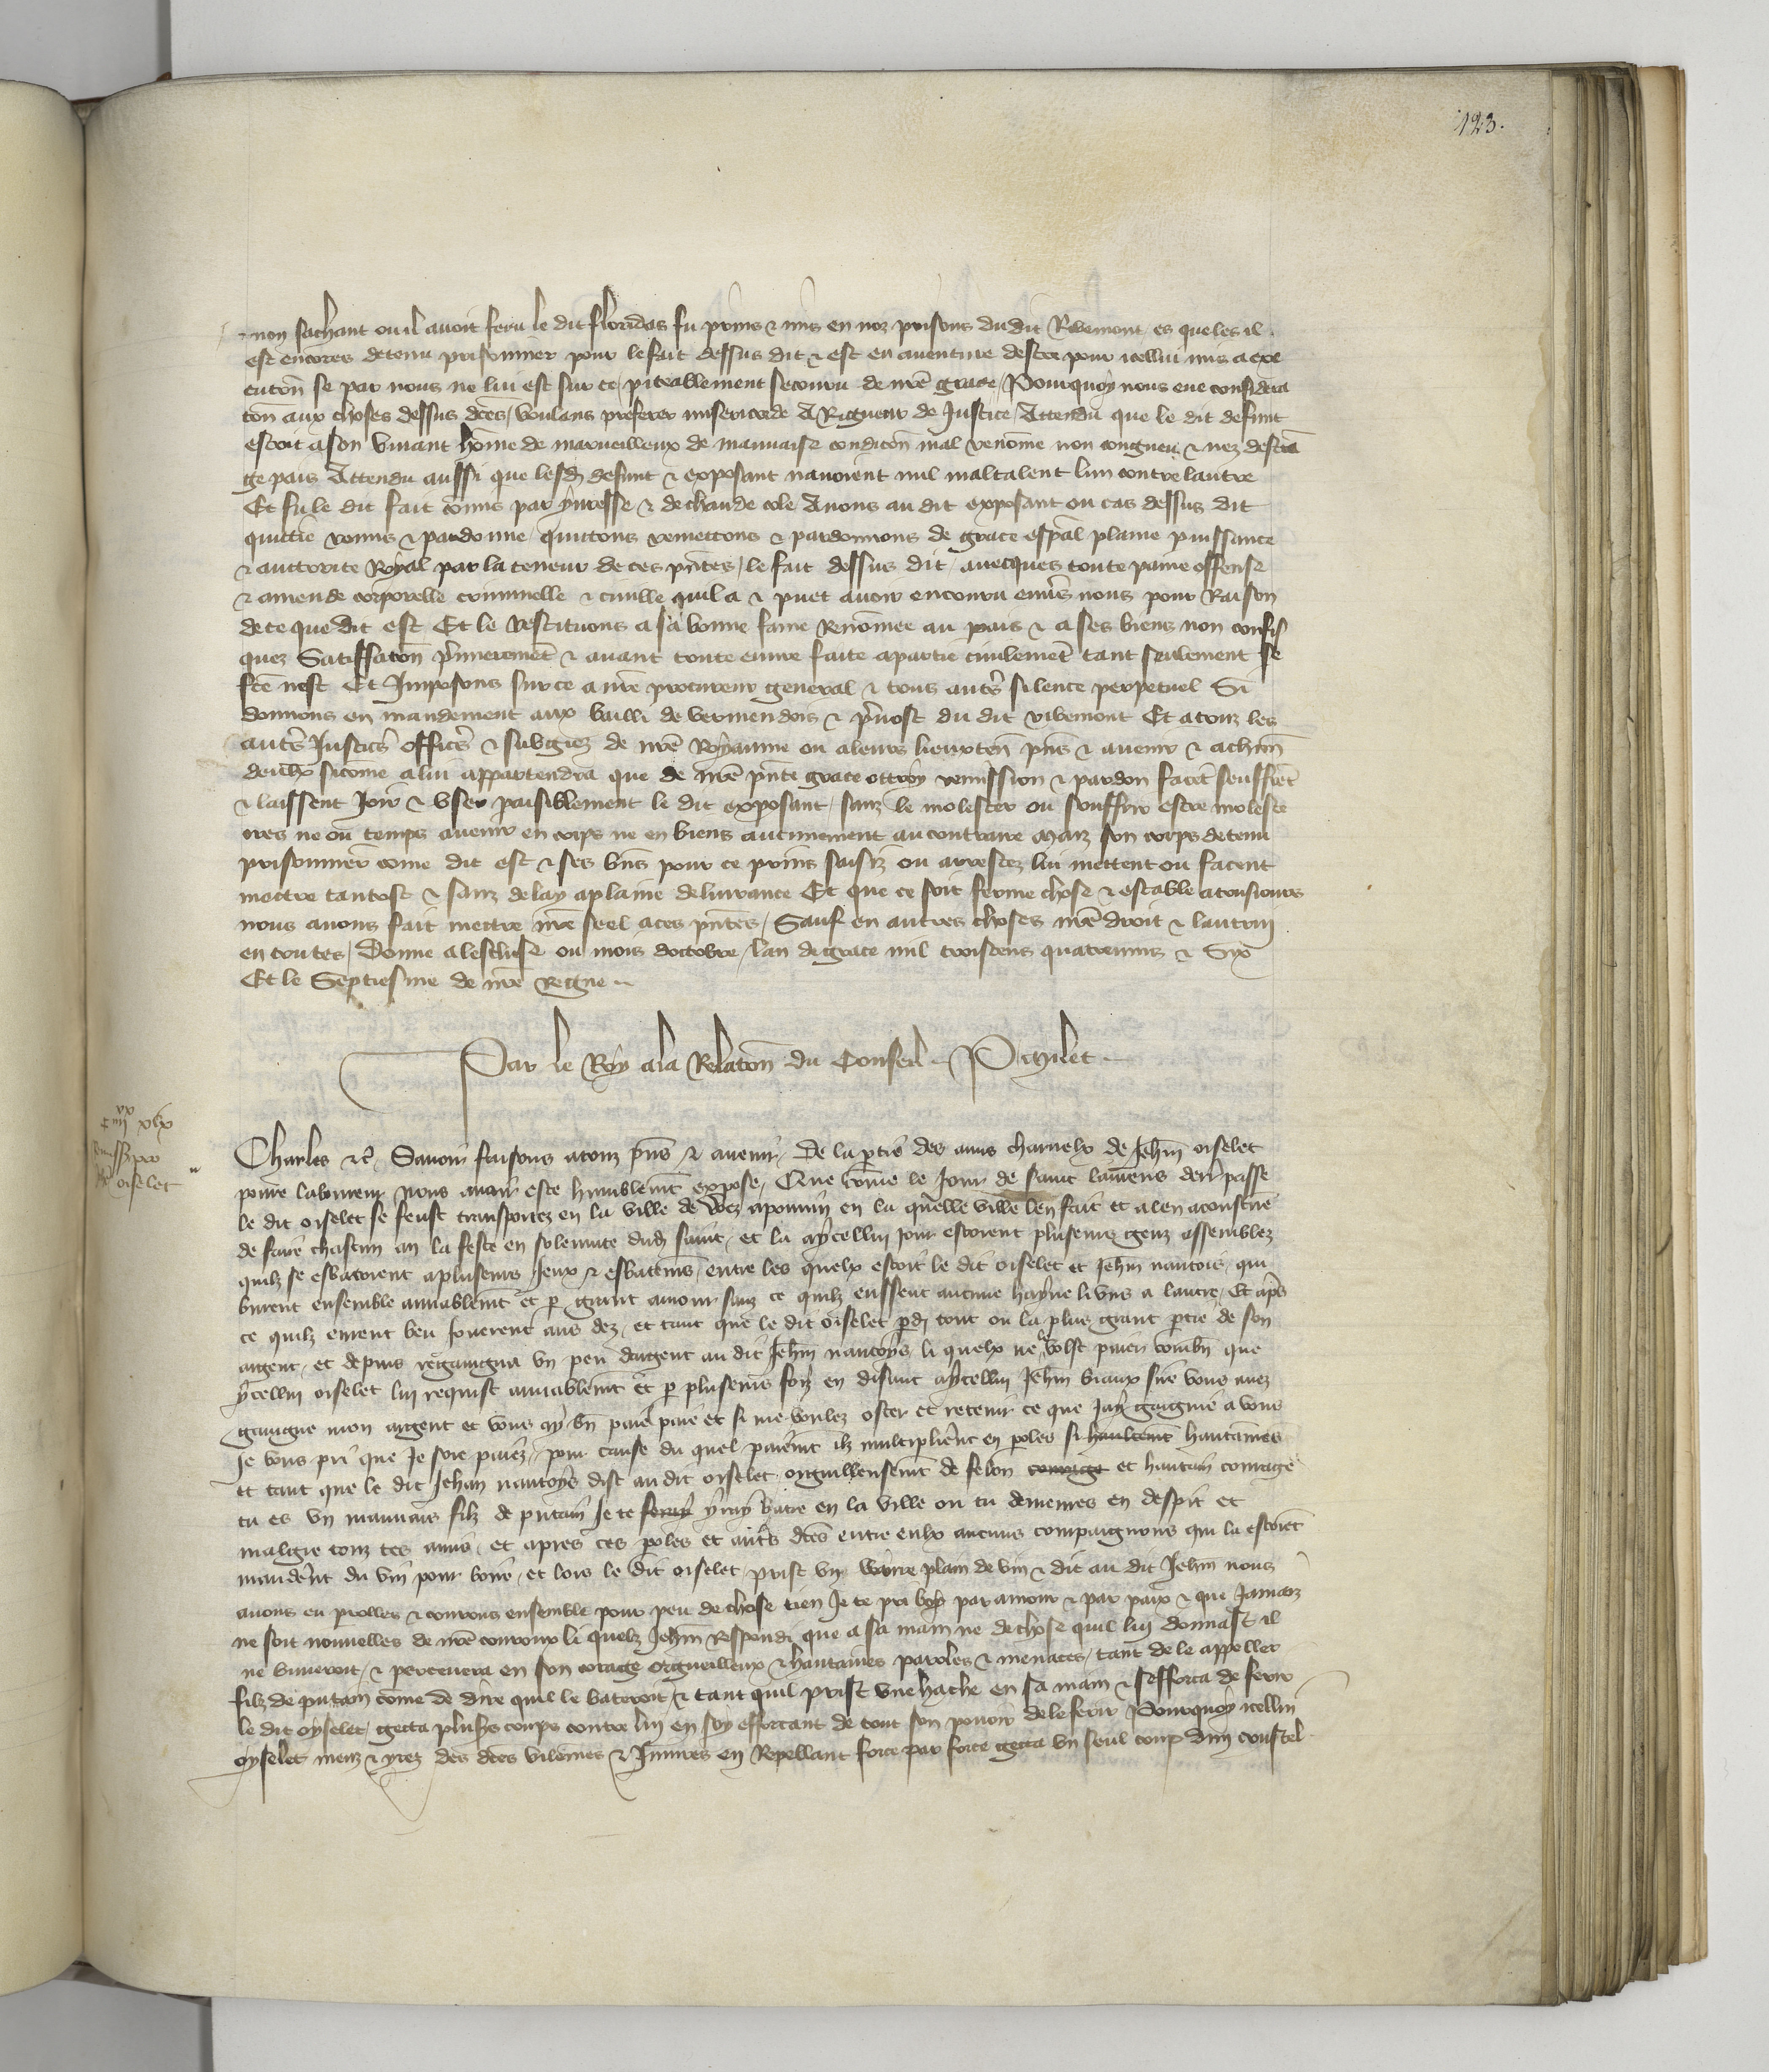 123.
non sachant ou il avoit feru le dit floridas fu prins & mis en noz prisons du dit Ribemont es queles il
est encores detenu prisonnier pour le fait dessus dit & est en aventure destre pour icellui mis a exe
cucōn se par nous ne lui est sur ce piteablement secouru de nrē grace / Pourquoy nous eue considera
cōn aux choses dessus dcēs / voulans preferer misericorde A Rigueur de Justice / Attendu que le dit defunt
estoit a son vivant hōme de merveilleux de mauvaise condicōn mal renōme non congneu & nez destrā
ge pais Attendu aussi que lesd defunt & exposant navoient nul maltalent lun contre lautre
Et fu le dit fait cōmis par yvresse & de chaude cole Avons au dit exposant ou cas dessus dit
quittie remis & pardonne / quittons remettons & pardonnons de grace espāl plaine puissance
& auctorite Royal par la teneur de ces pn̄tes / le fait dessus dit / avecques toute paine offense
& amende corporelle criminelle & civille quil a & puet avoir encouru envs nous pour Raison
de ce que dit est Et le Restituons a sa bonne fame Renōmee au pais & a ses biens non confis
quez Satiffacōn p̄mieremēt & avant toute euvre faite a partie civilemēt tant seulement se
fcē nest Et Imposons sur ce a nrē procureur general & tous autrs silence perpetuel Si
donnons en mandement aux bailli de vermendois & p̄vost du dit ribemont Et a touz les
autrs Justics offics & subgiez de nrē Royaume ou a leurs lieuxten̄ pn̄s & avenir & a chūn
deulx sicōme a lui appartendra que de nrē pn̄te grace ottroy remission & pardon facēt seuffrēt
& laissent Joir & user paisiblement le dit exposant / sanz le molester ou souffrir estre moleste
ores ne ou temps avenir en corps ne en biens aucunement au contraire Maiz son corps detenu
prisonnier cōme dit est & ses bn̄s pour ce prins saisiz ou arrestez lui mettent ou facent
mectre tantost & sanz delay a plaine delivrance Et que ce soit ferme chose & estable a tousiours
nous avons fait mectre nrē seel a ces pn̄tes / Sauf en autres choses nrē droit & lautrui
en toutes / Donne a lescluse ou mois doctobre / lan de grace mil troiscens quatrevins & Six
Et le Septiesme de nrē Regne
Par le Roy a la Relacōn du Conseil P Milet
oiselet
Charles &c̄ Savoir faisons a touz pn̄s & avenir De la ptie des amis charnelx de Jehn̄ oiselet
povre laboureur Nous avoir este humblemt̄ expose / Que cōme le Jour de saint laurens derr̄ passe
le dit oiselet se feust transportez en la ville de en la quelle ville len fait et a len acoustūe
de faire chascun an la feste en solennite dud saint / et la aycellui jour estoient pluseurs genz assemblez
quilz se esbatoient a pluseurs Jeux & esbatemens / entre les quelx estoit le dit oiselet et Jehn̄ nantois / qui
burent ensemble amiablemt̄ et p grant amour sanz ce quilz eussent aucune hayne li uns a lautre / Et apres
ce quilz eurent beu jouerent aus dez / et tant que le dit oiselet pdi tout ou la plus grant ptie de son
argent / et depuis regaaigna un peu dargent au dit Jehn̄ nantoys li quelx ne le volst paier combn̄ que
ycellui oiselet lui requist amiablemt̄ et p pluseurs foiz en disant aycellui Jehn̄ biaux sire vous avez
gaaigne mon argent et vous ay bn̄ paie et si me voulez oster et retenir ce que jay gaignie a vous
Je vous pri que Je soie paiez / pour cause du quel paiemt̄ ilz multiplierent en poles si haultemt̄ hautaines
et tant que le dit Jehan nantoys dist au dit oiselet orguilleusemt̄ de felon courage et hautain courage
tu es un mauvais filz de putain Je te feray yray batre en la ville ou tu demeures en despit et
malgre touz tes amis / et apres ces poles et autrs dcēs entre eulx aucuns compaignons qui la estoiēt
manderent du vin pour boire / et lors le dit oiselet / prist un voirre plain de vin & dit au dit Jehn̄ nous
avons eu prolles & courous ensemble pour peu de chose tien Je te pri boy par amour & par paix & que Jamaiz
ne soit nouvelles de nrē courroux li quelz Jehn̄ Respondi que a sa main ne de chose quil lui donnast il
ne buveroit / & persevera en son corage orgueilleux & hautaines paroles & menaces / tant de le appeller
filz de putain cōme de dire quil le bateroit / & tant quil prist une hache en sa main & sefforca de ferir
le dit oyselet / getta plusrs coups contre lui en soy efforcant de tout son pouoir de le ferir Pourquoy icellui
oyselet meuz & yrez des dcēs vilenies & Iniures en Repellant force par force getta un seul coup dun coustel